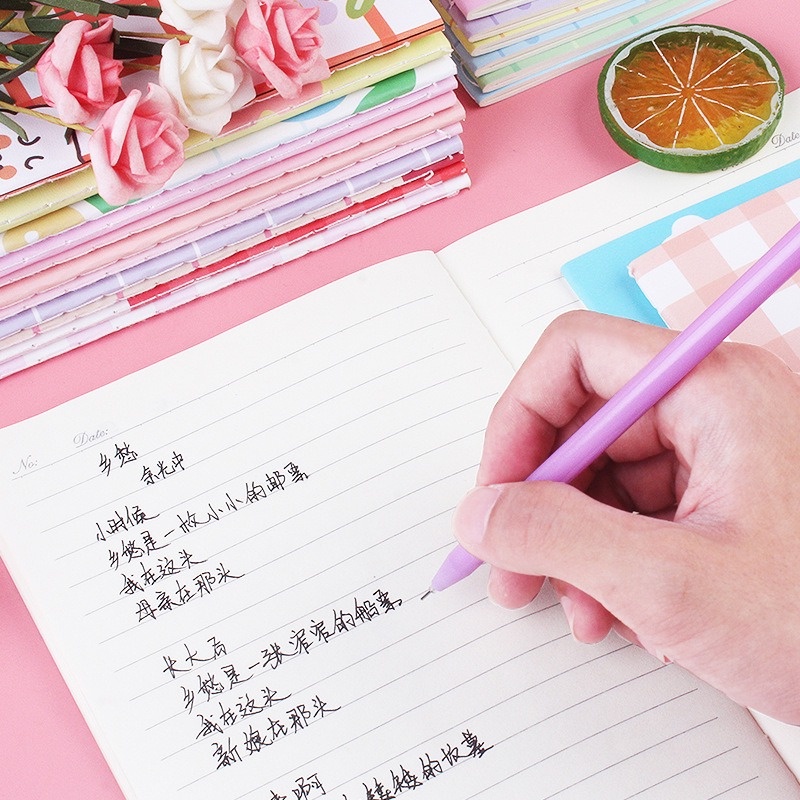 No:
Date:
乡愁
余光中
小时候
乡愁是一枚小小的邮票
我在这头
母亲在那头
长大后
乡愁是一张窄窄的船票
我在这头
新娘在那头
啊
矮矮的坟墓
Date: